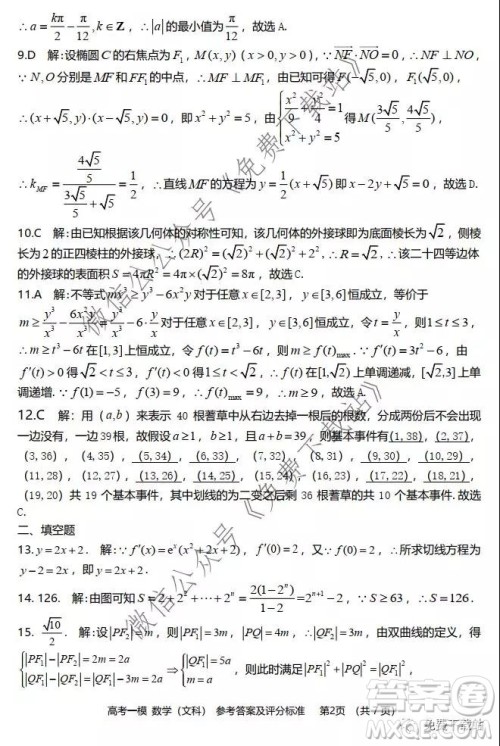 ∴ a = kπ/2 − π/12, k∈Z, ∴ |a| 的最小值为 π/12，故选 A.
9.D 解:设椭圆 C 的右焦点为 F₁, M(x, y)（x>0, y>0）, ∵ NF·NO = 0, ∴ NF⊥NO,
∵ N,O 分别是 MF 和 FF₁ 的中点, ∴ MF⊥MF₁, 由已知可得 F(−√5,0), F₁(√5,0),
∴ (x+√5,y)·(x−√5,y)=0, 即 x²+y²=5, 由 {x²/9+y²/4=1, x²+y²=5 得 M(3√5/5, 4√5/5),
∴ k_MF = (4√5/5)/(3√5/5+√5) = 1/2, ∴直线 MF 的方程为 y=1/2(x+√5) 即 x−2y+√5=0, 故选 D.
10.C 解:由已知根据该几何体的对称性可知，该几何体的外接球即为底面棱长为√2, 侧棱
长为 2 的正四棱柱的外接球, ∴ (2R)²=(√2)²+(√2)²+2², ∴ R=√2, ∴该二十四等边体
的外接球的表面积 S=4πR²=4π×(√2)²=8π, 故选 C.
11.A 解:不等式 mx³ ≥ y³−6x²y 对于任意 x∈[2,3], y∈[3,6] 恒成立，等价于
m ≥ y³/x³ − 6x²y/x³ = y³/x³ − 6y/x 对于任意 x∈[2,3], y∈[3,6] 恒成立，令 t=y/x, 则 1≤t≤3,
∴ m≥t³−6t 在[1,3]上恒成立，令 f(t)=t³−6t, 则 m≥f(t)max. ∵ f′(t)=3t²−6, 由
f′(t)>0 得 √2<t≤3, 由 f′(t)<0 得 1≤t<√2, ∴ f(t) 在 [1,√2] 上单调递减, [√2,3] 上单
调递增. ∵ f(1)=−5, f(3)=9, ∴ f(t)max=9, ∴ m≥9, 故选 A.
12.C 解：用 (a,b) 来表示 40 根蓍草中从右边去掉一根后的根数，分成两份后不会出现
一边没有，一边 39 根，故而设 a≥1, b≥1, 且 a+b=39, 则所有的基本事件有(1,38), (2,37),
(3,36), (4,35), (5,34), (6,33), (7,32), (8,31), (9,30), (10,29)
(11,28), (12,27), (13,26), (14,25), (15,24), (16,23), (17,22), (18,21),
(19,20) 共 19 个基本事件，其中划线的为二变之后剩 36 根蓍草的共 10 个基本事件.故选
C.
二、填空题
13. y=2x+2. 解: ∵ f′(x)=eˣ(x²+2x+2), f′(0)=2, 又 ∵ f(0)=2, ∴所求切线方程为
y−2=2x, 即 y=2x+2.
14. 126. 解:由图可知 S=2+2²+⋯+2ⁿ=2(1−2ⁿ)/(1−2)=2ⁿ⁺¹−2, ∵ S≥63, ∴ S=126.
15. √10/2. 解:设|PF₂|=m, 则|PF₁|=3m, |PQ|=4m, ∴|QF₂|=3m, 由双曲线的定义，得
{|PF₁|−|PF₂|=2m=2a, |QF₁|−|QF₂|=|QF₁|−3m=2a ⇒ {|QF₁|=5a, m=a, 则此时满足|PF₁|²+|PQ|²=|QF₁|²,
高考一模 数学（文科） 参考答案及评分标准 第2页 （共7页）
微信公众号《免费下载站》
微信公众号《免费下载站》
免费下载站